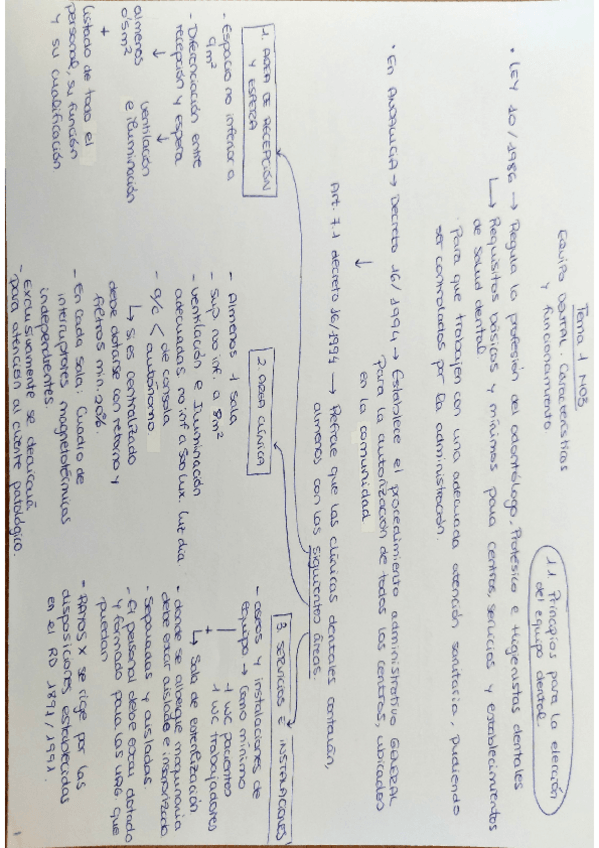 Tema 1 N03
Equipo Dental. Características
y funcionamiento.
1.1. Principios para la elección
del equipo dental.
• LEY 10/1986 → Regula la profesión del odontólogo, Protésico e Higienistas dentales
↳ Requisitos básicos y mínimos para centros, servicios y establecimientos
de salud dental.
· Para que trabajen con una adecuada atención sanitaria, pudiendo
ser controlados por la administración.
• En ANDALUCÍA → Decreto 16/1994 → Establece el procedimiento administrativo GENERAL
para la autorización de todos los centros, ubicados
en la comunidad
↓
Art. 7.1 decreto 16/1994 → Refiere que las clínicas dentales contarán,
almenos con las siguientes áreas.
1. ÁREA DE RECEPCIÓN
Y ESPERA
- Espacio no inferior a
9m²
- Diferenciación entre
recepción y espera
↓ ↓
almenos ventilación
0'5m² e iluminación
+
Listado de todo el
personal, su función
y su cualificación
2. ÁREA CLÍNICA
- Almenos 1 sala
- sup no inf. a 8m²
- ventilación e Iluminación
adecuadas no inf a 500 lux luz día
- a/c < de consola
autónomo.
↳ si es centralizado
debe dotarse con retorno y
filtros min. 20%.
- En cada sala: Cuadro de
interruptores magnetotérmicos
independientes
- Exclusivamente se dedicará
para atención al cliente patológico.
3. SERVICIOS E INSTALACIONES
- aseos y instalaciones de
equipo → Como mínimo
1 WC pacientes
1 WC trabajadores
+
↳ Sala de esterilización
- donde se albergue maquinaria
debe estar aislado e insonorizado
- Separadas y aisladas.
- El personal debe estar dotado
y formado para las URG. que
puedan
- RAYOS X se rige por las
disposiciones establecidas
en el RD 1891/1991.
1